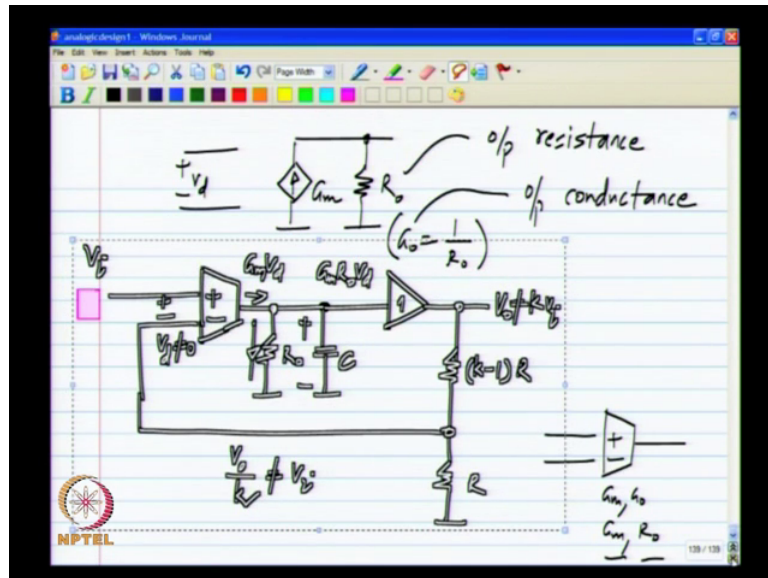 analogicdesign1 - Windows Journal
File Edit View Insert Actions Tools Help
Page Width
B I
+
-
v_d
G_m
R_o
o/p resistance
o/p conductance
(G_o = 1/R_o)
V_i
+
-
V_d ≠ 0
+
-
G_m V_d
G_m R_o V_d
R_o
+
-
C
1
V_o ≠ k V_i
(k-1)R
V_o/k ≠ V_i
R
+
-
G_m, G_o
G_m, R_o
NPTEL
139 / 139